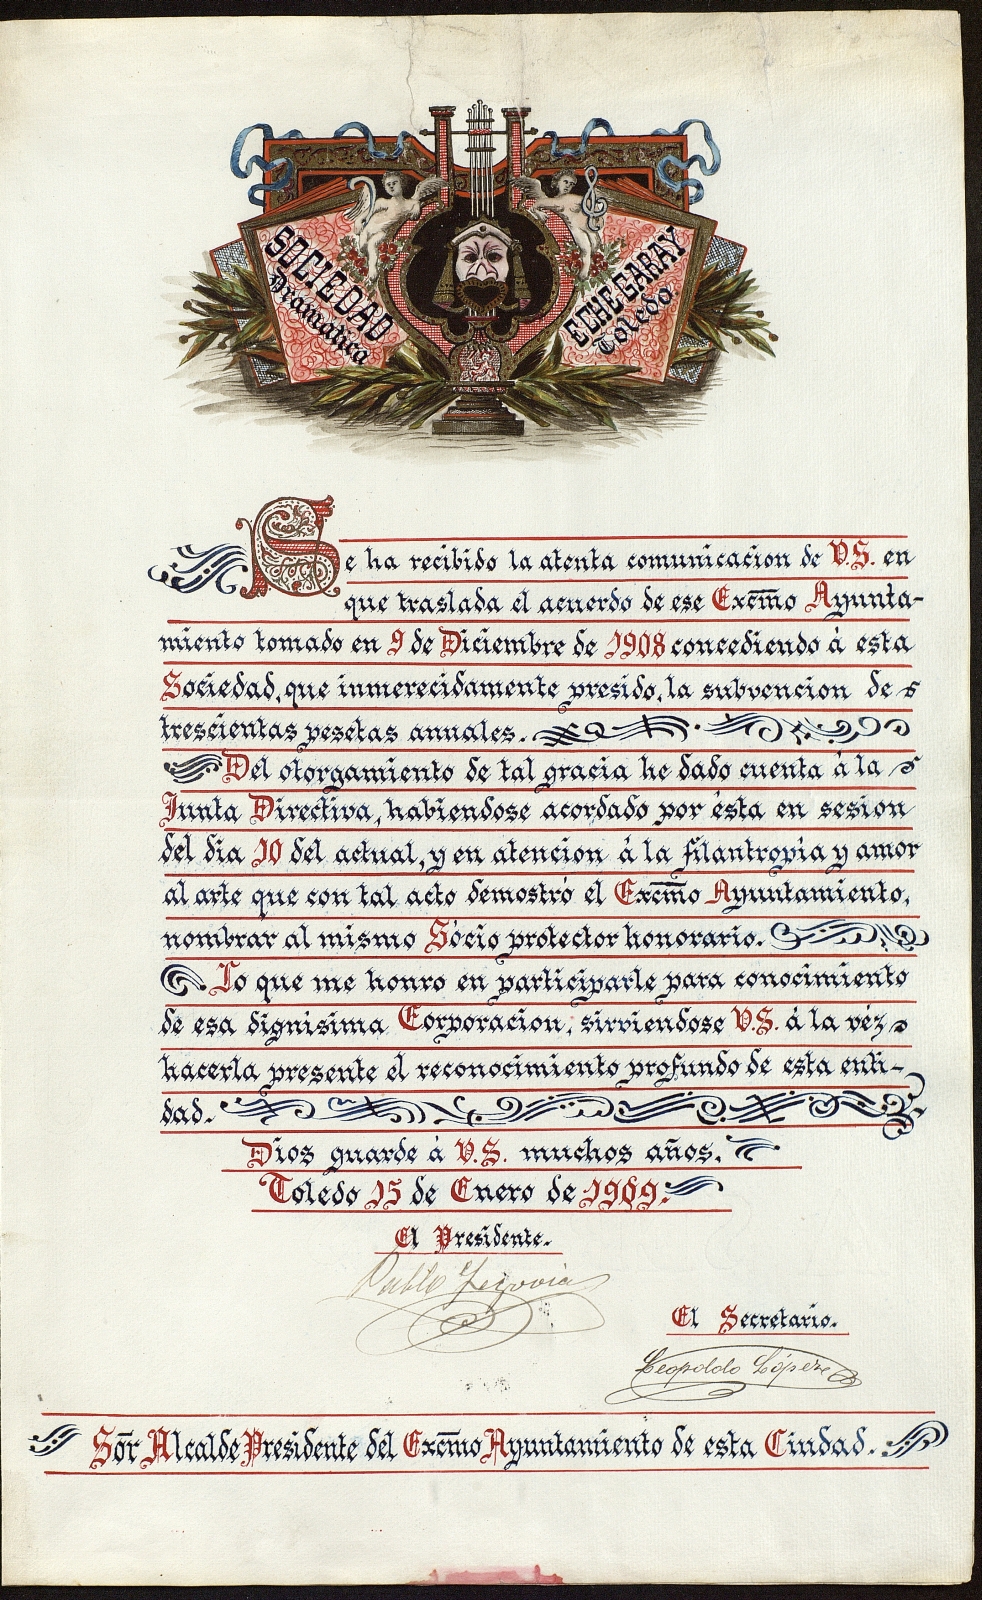 SOCIEDAD
Dramatica
ECHEGARAY
Toledo.
Se ha recibido la atenta comunicacion de V.S. en
que traslada el acuerdo de ese Excm̃o Ayunta-
miento tomado en 9 de Diciembre de 1908 concediendo á esta
Sociedad, que inmerecidamente presido, la subvencion de
trescientas pesetas anuales.
Del otorgamiento de tal gracia he dado cuenta á la
Junta Directiva, habiendose acordado por ésta en sesion
del dia 10 del actual, y en atencion á la filantropía y amor
al arte que con tal acto demostró el Excm̃o Ayuntamiento,
nombrar al mismo Sócio protector honorario.
Lo que me honro en participarle para conocimiento
de esa dignisima Corporacion, sirviendose V.S. á la véz
hacerla presente el reconocimiento profundo de esta enti-
dad.
Dios guarde á V.S. muchos años.
Toledo 15 de Enero de 1909.
El Presidente.
Pablo Segovia
El Secretario.
Leopoldo López
Sõr Alcalde Presidente del Excm̃o Ayuntamiento de esta Ciudad.